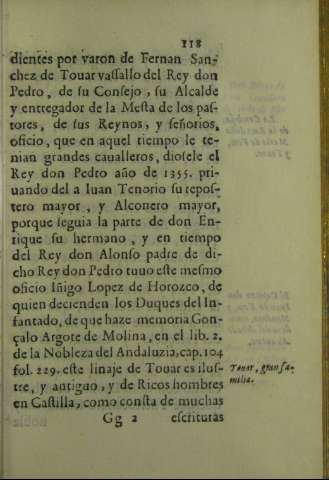 118
dientes por varon de Fernan San-
chez de Touar vassallo del Rey don
Pedro, de su Consejo, su Alcalde
y entregador de la Mesta de los pas-
tores, de sus Reynos, y señorios,
oficio, que en aquel tiempo le te-
nian grandes caualleros, diosele el
Rey don Pedro año de 1355. pri-
uando del a Iuan Tenorio su repos-
tero mayor, y Alconero mayor,
porque seguia la parte de don En-
rique su hermano, y en tiempo
del Rey don Alonso padre de di-
cho Rey don Pedro tuuo este mesmo
oficio Iñigo Lopez de Horozco, de
quien decienden los Duques del In-
fantado, de que haze memoria Gon-
çalo Argote de Molina, en el lib. 2.
de la Nobleza del Andaluzia, cap. 104
fol. 229. este linaje de Touar es ilus-
tre, y antiguo, y de Ricos hombres
en Castilla, como consta de muchas
Touar, gran fa-
milia.
Gg 2 escrituras